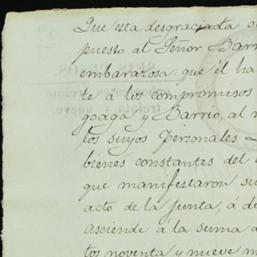 Que esta desgraciada o
puesto al Señor Barr
embarazosa: que él ha
te á los compromisos
goaga y Barrio, al n
los suyos personales
bienes constantes del
que manifestaron su
acto de la junta, á d
asciende á la suma d
tos noventa y nueve m